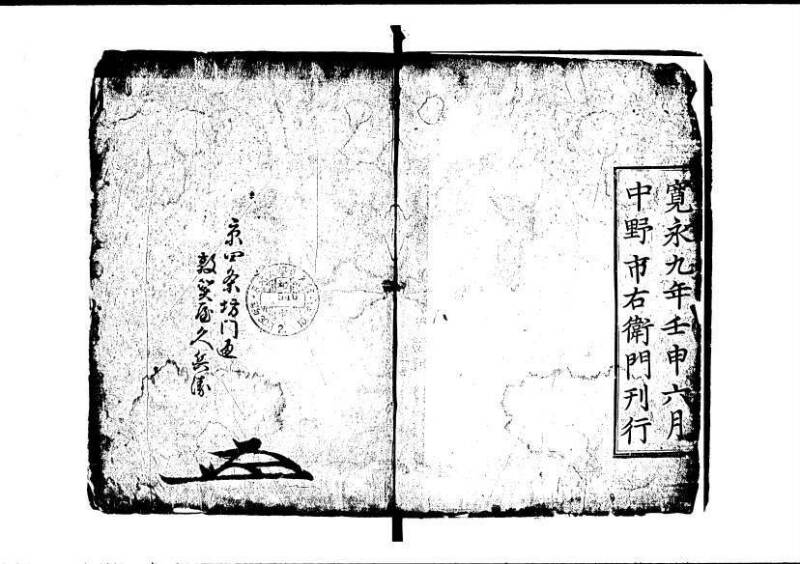 寛永九年壬申六月
中野市右衛門刊行
京四条坊门通
敦賀屋久兵衛